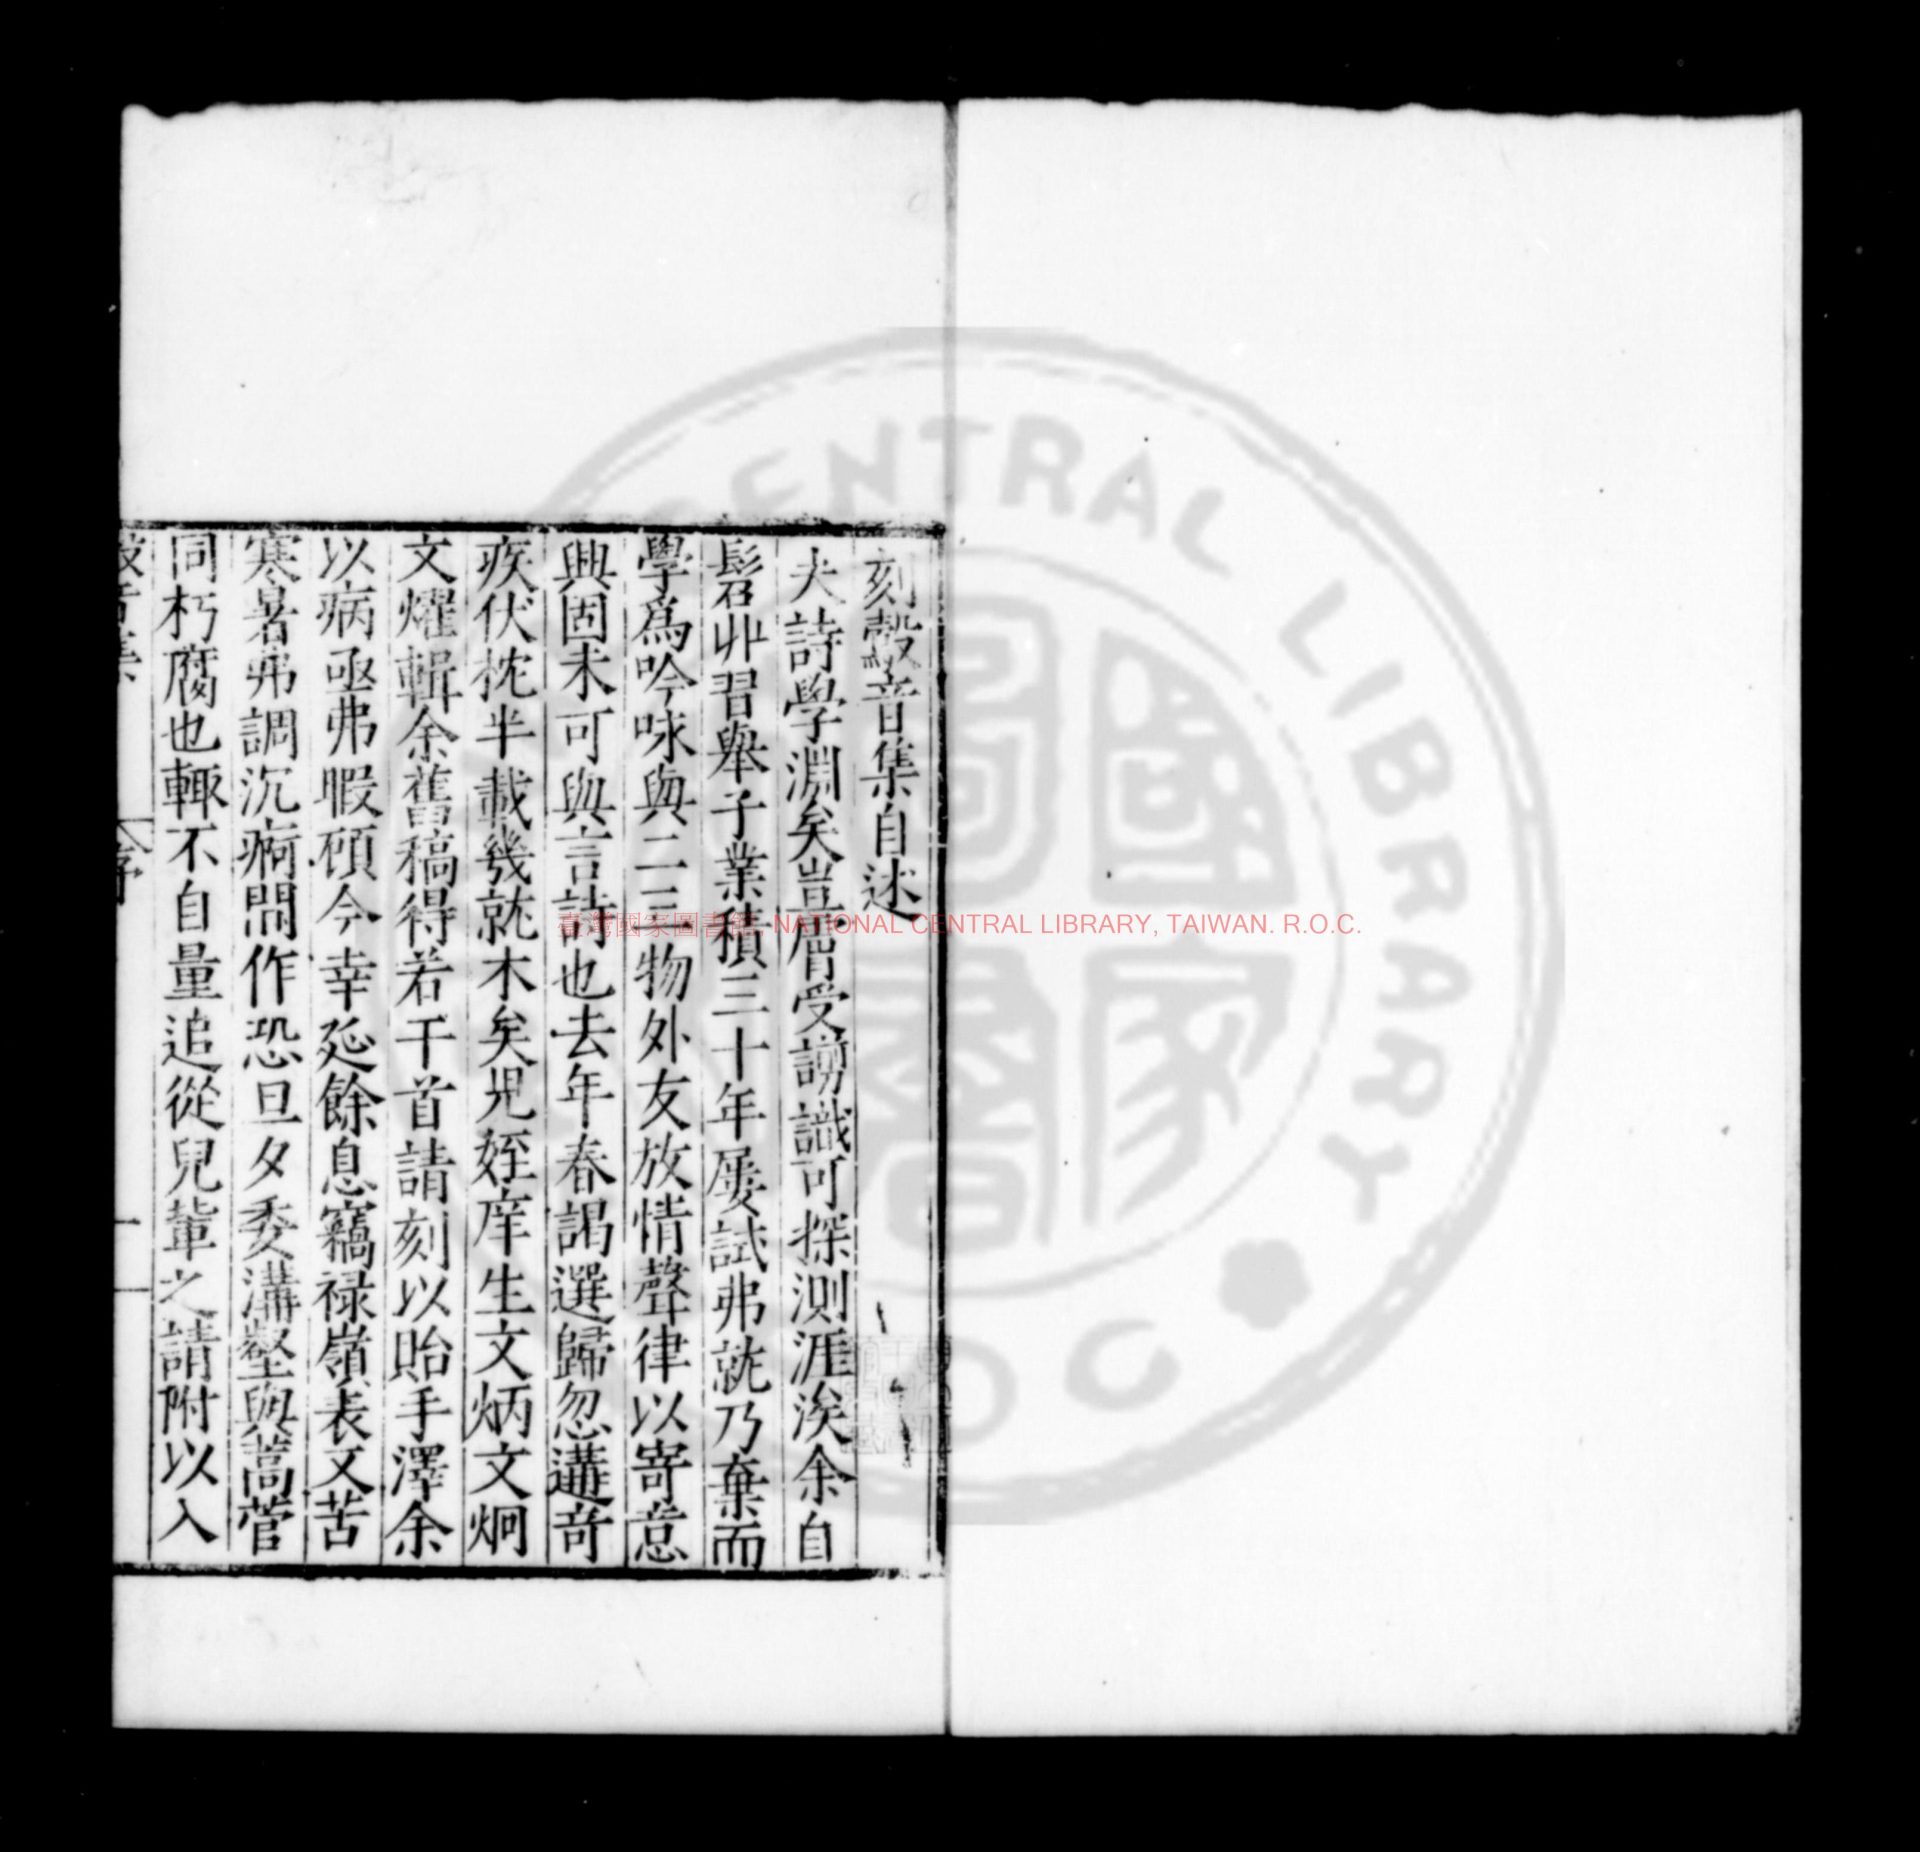 刻鷇音集自述
夫詩學淵矣豈屑受謭識可探測涯涘余自
髫丱習舉子業積三十年屢試弗就乃棄而
學爲吟咏與二三物外友放情聲律以寄意
興固未可與言詩也去年春謁選歸忽遘竒
疾伏枕半載幾就木矣児姪庠生文炳文炯
文燿輯余舊稿得若干首請刻以貽手澤余
以病亟弗暇顧今幸延餘息竊祿嶺表又苦
寒暑弗調沉痾間作恐旦夕委溝壑與蒿菅
同朽腐也輙不自量追從兒輩之請附以入
序
一
臺灣國家圖書館, NATIONAL CENTRAL LIBRARY, TAIWAN. R.O.C.
CENTRAL LIBRARY
國家圖書